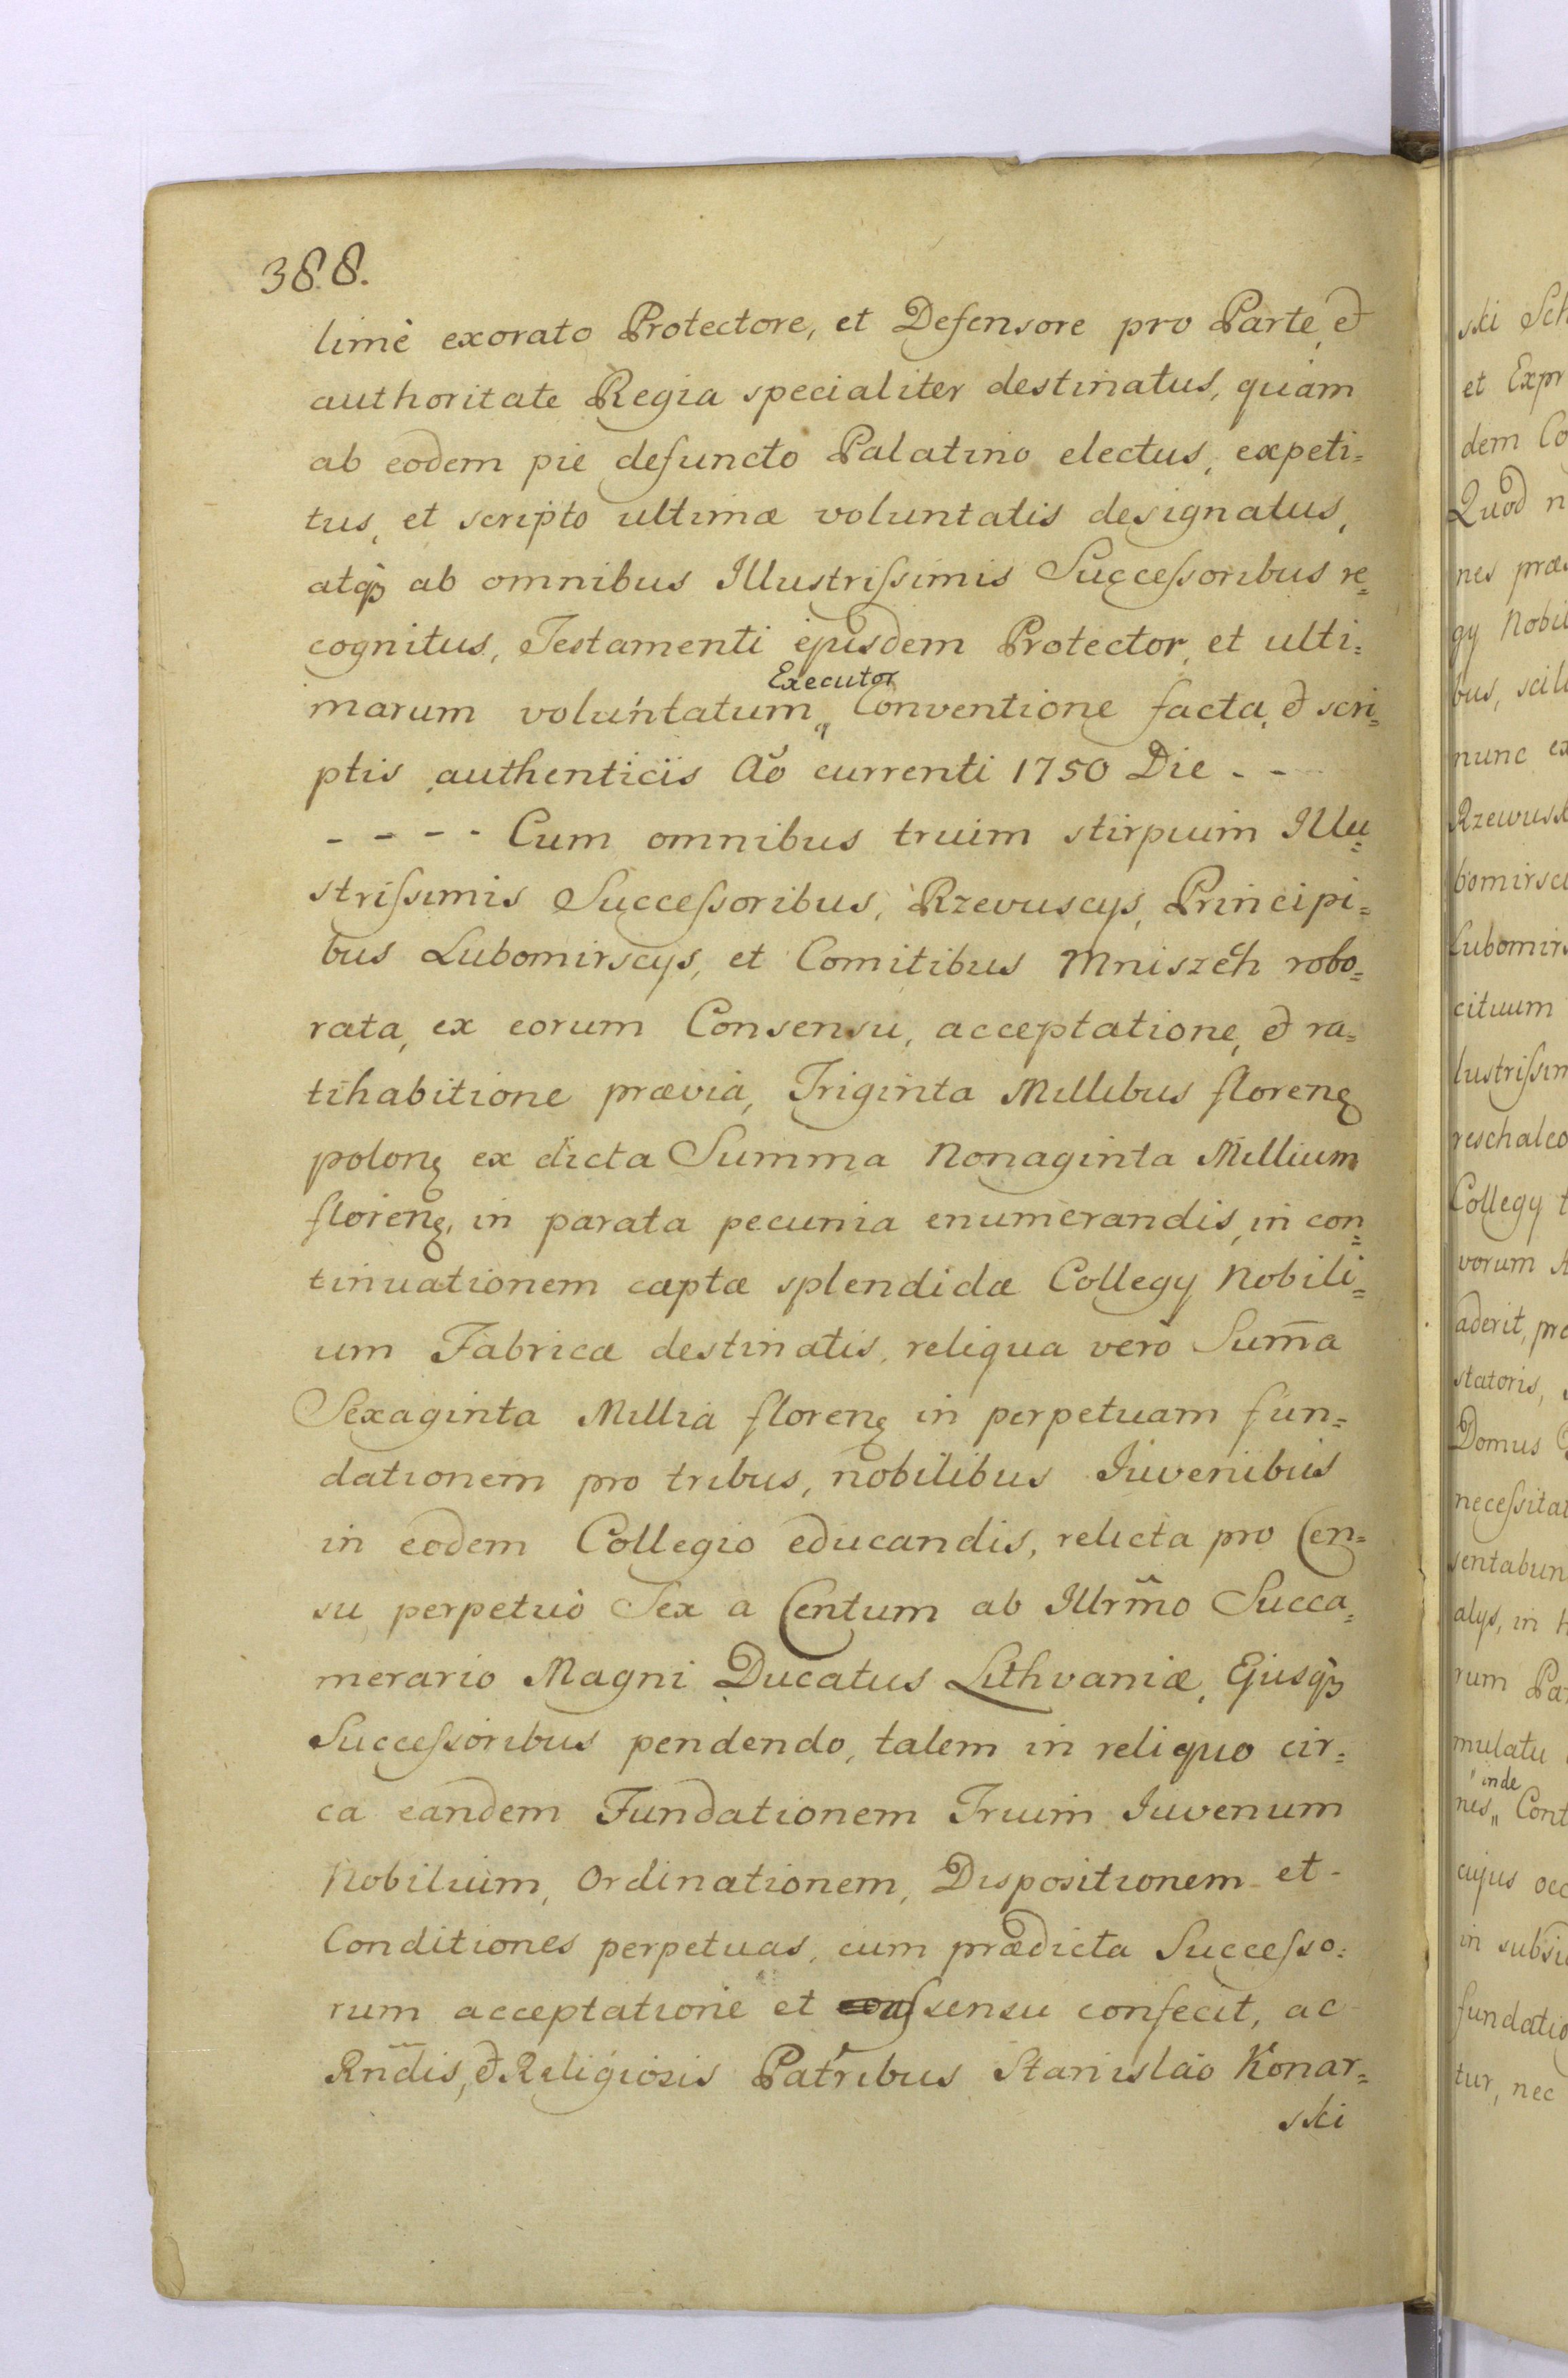 388.
limè exorato Protectore, et Defensore pro Parte, et
authoritate Regia specialiter destinatus, quàm
ab eodem piè defuncto Palatino electus, expeti=
tus, et scripto ultimæ voluntatis designatus,
atq3 ab omnibus Illustrissimis Successoribus re=
cognitus, Testamenti ejusdem Protector, et ulti=
Executor
marum voluntatum„ Conventione facta, et scri=
ptis authenticis Aõ currenti 1750 Die - -
- - - - Cum omnibus trium stirpium Illu=
strissimis Successoribus, Rzevuscijs, Principi=
bus Lubomirscijs, et Comitibus Mniszech robo=
rata, ex eorum Consensu, acceptatione, et ra=
tihabitione prævia, Triginta Millibus florenɇ
polonɇ ex dicta Summa Nonaginta Millium
florenɇ, in parata pecunia enumerandis, in con=
tinuationem captæ splendidæ Collegij Nobili=
um Fabricæ destinatis, reliqua verò Sum̅a
Sexaginta Millia florenɇ in perpetuam fun=
dationem pro tribus, nobilibus Iuvenibus
in eodem Collegio educandis, relicta pro Cen=
su perpetuò Sex a Centum ab Illr̃mo Succa=
merario Magni Ducatus Lithvaniæ, Ejusq3
Successoribus pendendo, talem in reliquo cir=
ca eandem Fundationem Trium Iuvenum
Nobilium, Ordinationem, Dispositionem et -
Conditiones perpetuas, cum prædicta Successo=
rum acceptatione et assensu confecit, ac
Rñdis, et Religiosis Patribus Stanislao Konar=
ski
ski Sch
et Expr
dem Co
Quod n
nes præ
gij Nobil
bus, scili
nunc ex
Rzewusk
bomirsci
Lubomirs
cituum
lustrissim
reschalco
Collegij t
vorum
aderit, pro
statoris,
Domus
necessitat
sentabun
alijs, in
rum Pa
mulatu
inde
nes„ Cont
cujus occ
in subsi
fundatio
tur, nec